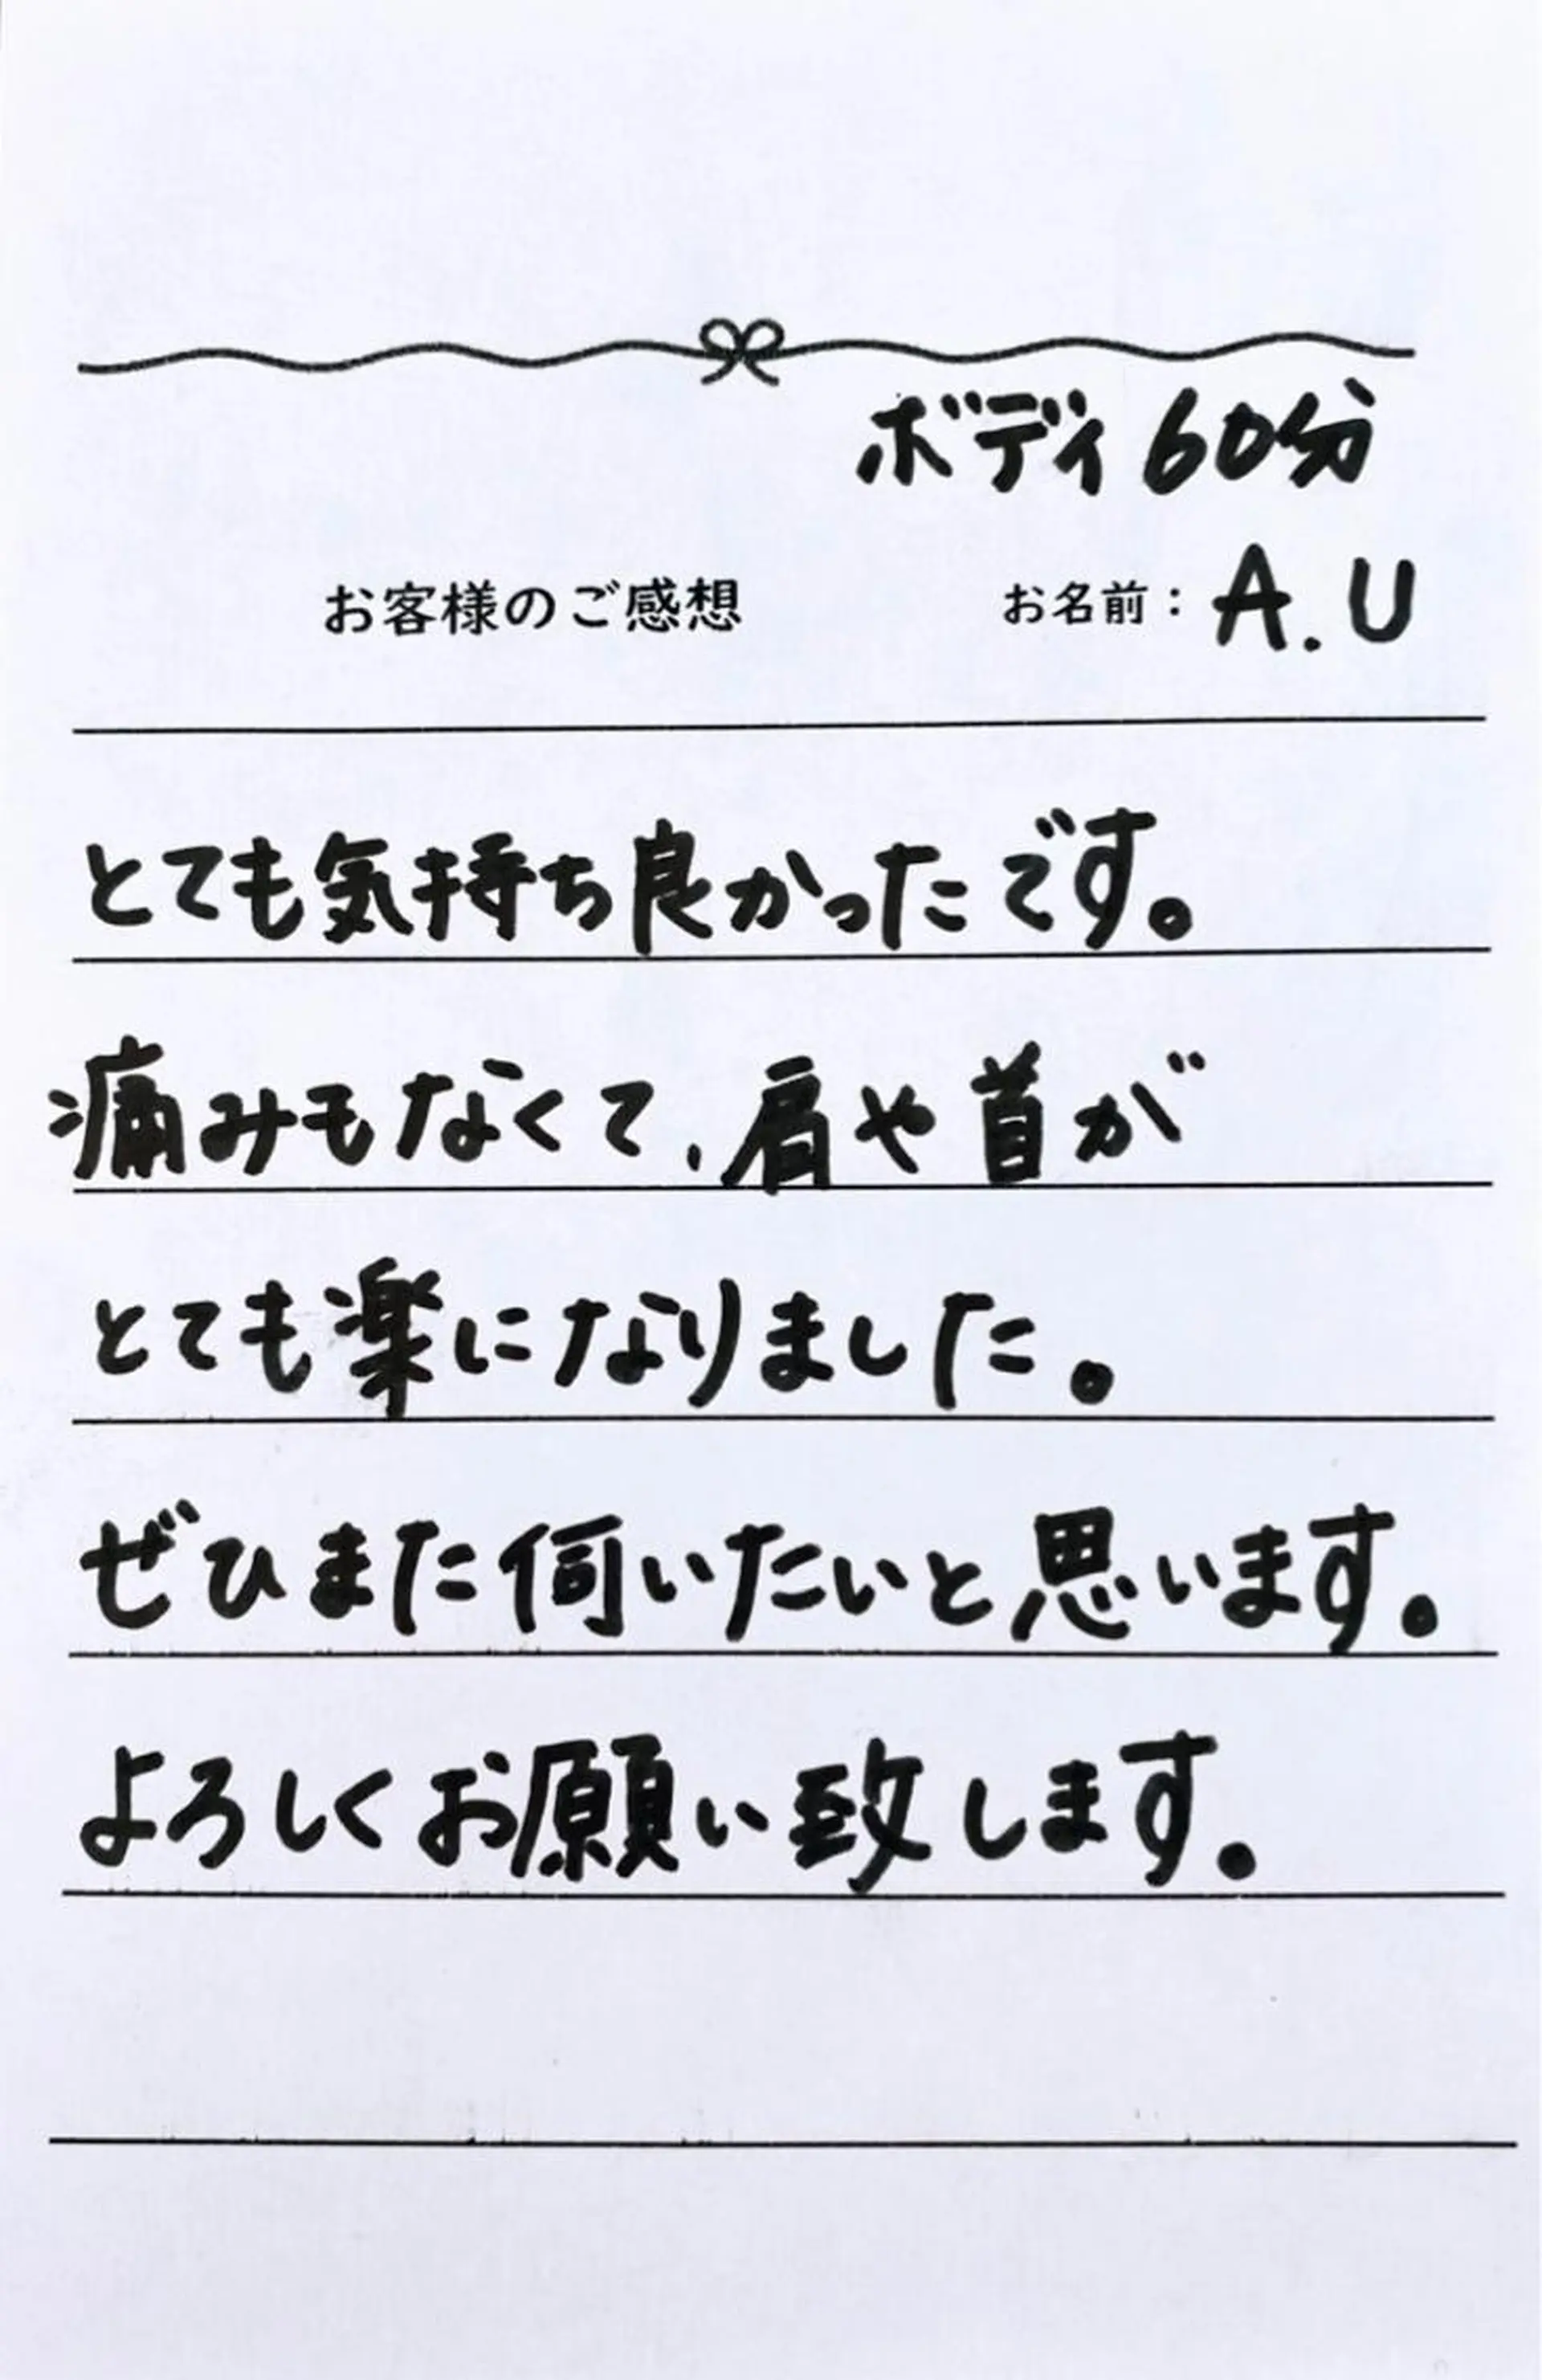 ボディ60分
お客様のご感想 お名前：A.U
とても気持ち良かったです。
痛みもなくて、肩や首が
とても楽になりました。
ぜひまた伺いたいと思います。
よろしくお願い致します。